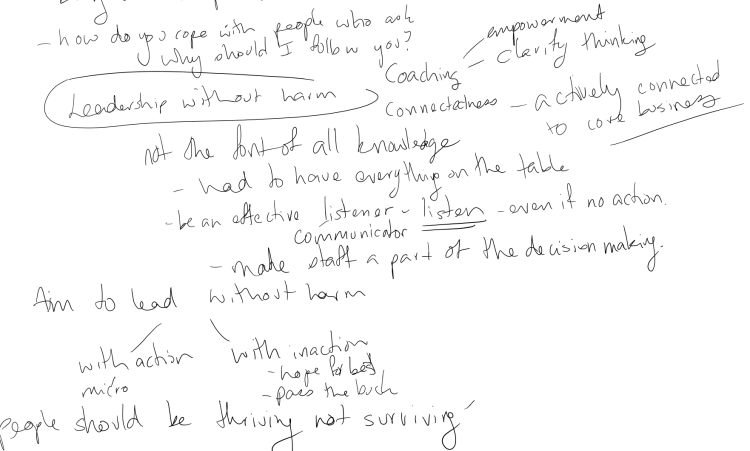 - how do you cope with people who ask
why should I follow you?
empowerment
Coaching - clarity thinking
Leadership without harm
Connectatness - actively connected
to core business
not the font of all knowledge
- had to have everything on the table
- be an effective listener - listen - even if no action.
communicator
- made staff a part of the decision making.
Aim to lead without harm
with action
micro
with inaction
- hope for best
- pass the buck
People should be thriving not surviving